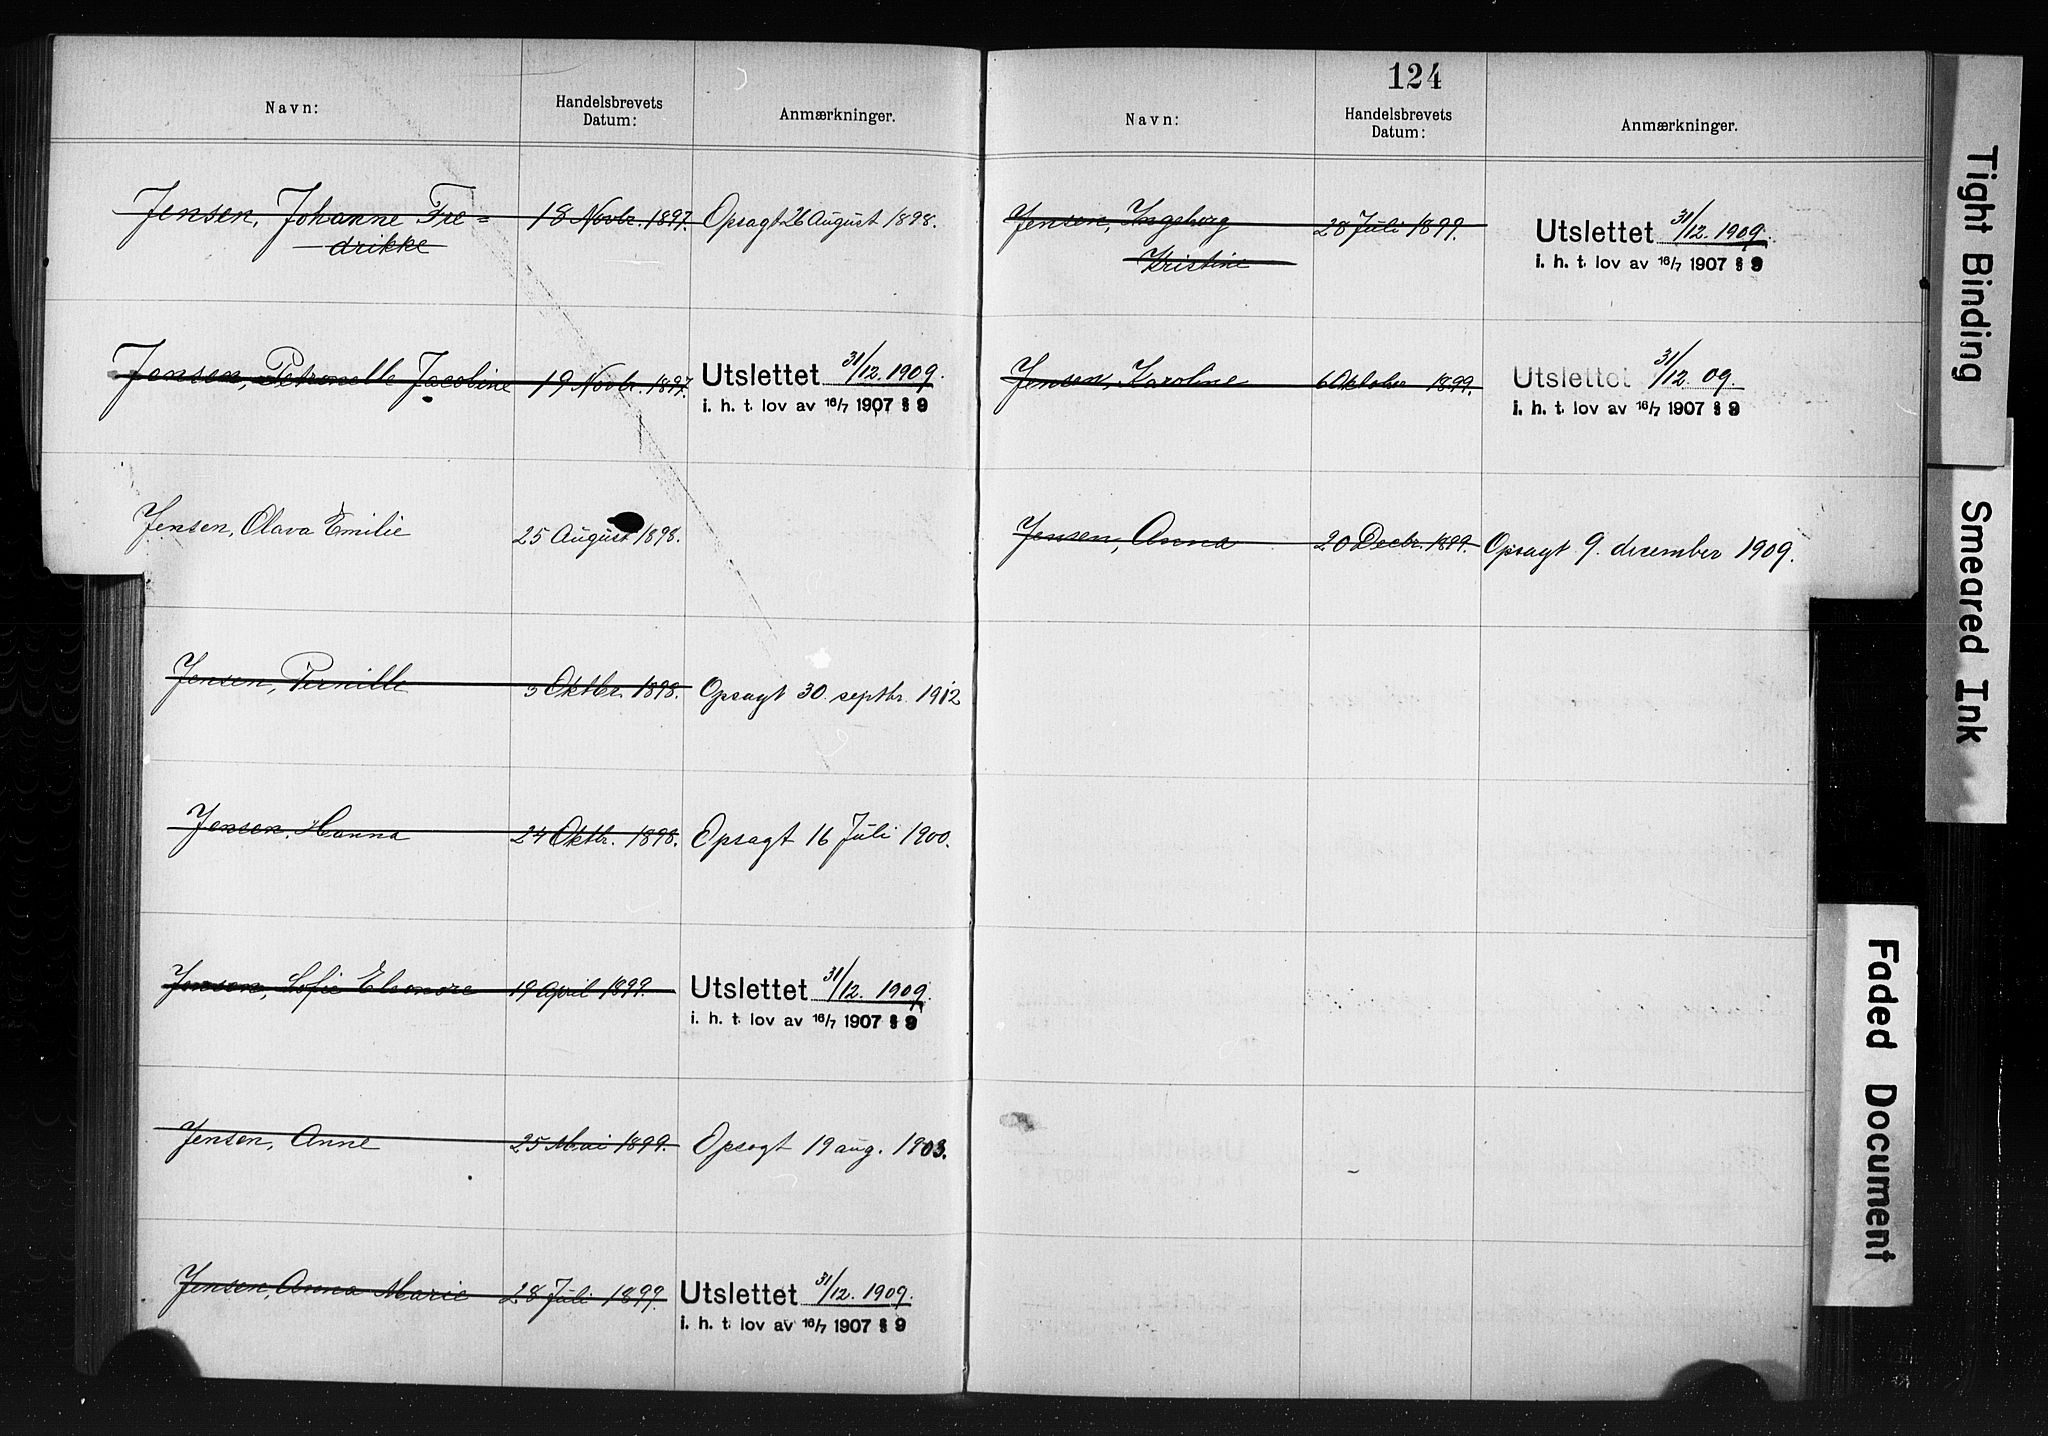 Navn:
Handelsbrevets
Datum:
Anmærkninger.
Jensen, Johanne Fre=
drikke
18 Novbr. 1897.
Opsagt 26 August 1898.
Jensen, Petronelle Jacobine
19 Novbr. 1897.
Utslettet 31/12. 1909.
i. h. t. lov av 16/7 1907 § 9
Jensen, Olava Emilie
25 August 1898.
Jensen, Pernille
3 Oktbr. 1898.
Opsagt 30. septbr. 1912
Jensen, Hanna
24 Oktbr. 1898.
Opsagt 16 Juli 1900.
Jensen, Sofie Eleonore
19 April 1899.
Utslettet 31/12. 1909.
i. h. t. lov av 16/7 1907 § 9
Jensen, Anne
25 Mai 1899.
Opsagt 19 aug. 1903.
Jensen, Anna Marie
28 Juli 1899.
Utslettet 31/12. 1909.
i. h. t. lov av 16/7 1907 § 9
124
Navn:
Handelsbrevets
Datum:
Anmærkninger.
Jensen, Ingeborg
Kristine
28 Juli 1899.
Utslettet 31/12. 1909.
i. h. t. lov av 16/7 1907 § 9
Jensen, Karoline
6 Oktober 1899.
Utslettet 31/12. 09.
i. h. t. lov av 16/7 1907 § 9
Jensen, Anna
20 Decbr. 1899.
Opsagt 9. december 1909.
Tight Binding
Smeared Ink
Faded Document